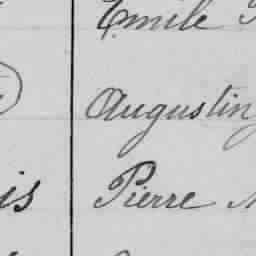 Emile
Augustin
is Pierre